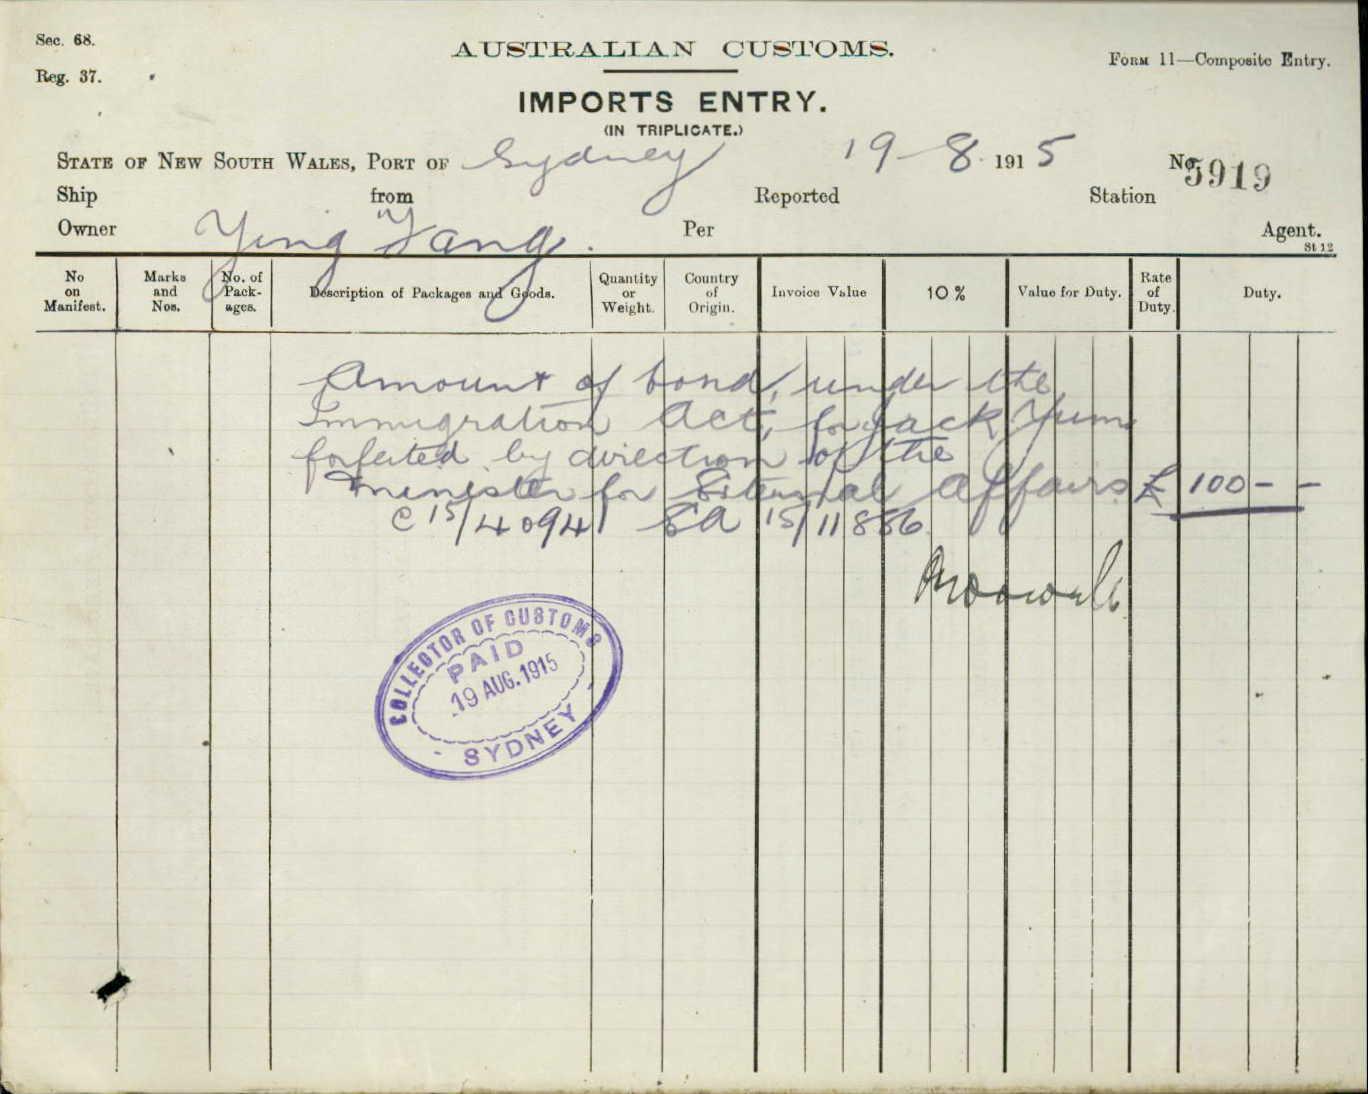 Sec. 68.
Reg. 37.
AUSTRALIAN CUSTOMS.
Form 11—Composite Entry.
IMPORTS ENTRY.
(IN TRIPLICATE.)
State of New South Wales, Port of Sydney 19-8-1915 No. 5919
Ship from Reported Station
Owner Ying Yang. Per Agent.
St 12
No on Manifest. Marks and Nos. No. of Pack-ages. Description of Packages and Goods. Quantity or Weight. Country of Origin. Invoice Value 10 % Value for Duty. Rate of Duty. Duty.
Amount of bond, under the
Immigration Act, for Jack Yum
forfeited by direction of the
Minister for External Affairs £ 100 - -
C 15/40941 EA 15/11856
COLLECTOR OF CUSTOMS
PAID
19 AUG. 1915
SYDNEY